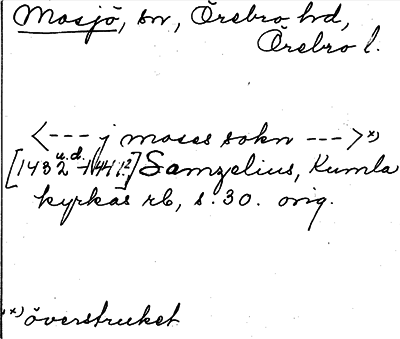 Mosjö, sn, Örebro hd,
Örebro l.
<--- j moses sokn --->x)
u.d.
[1432 - 1441?] Samzelius, Kumla
kyrkas rb, s. 30. orig.
x) överstruket